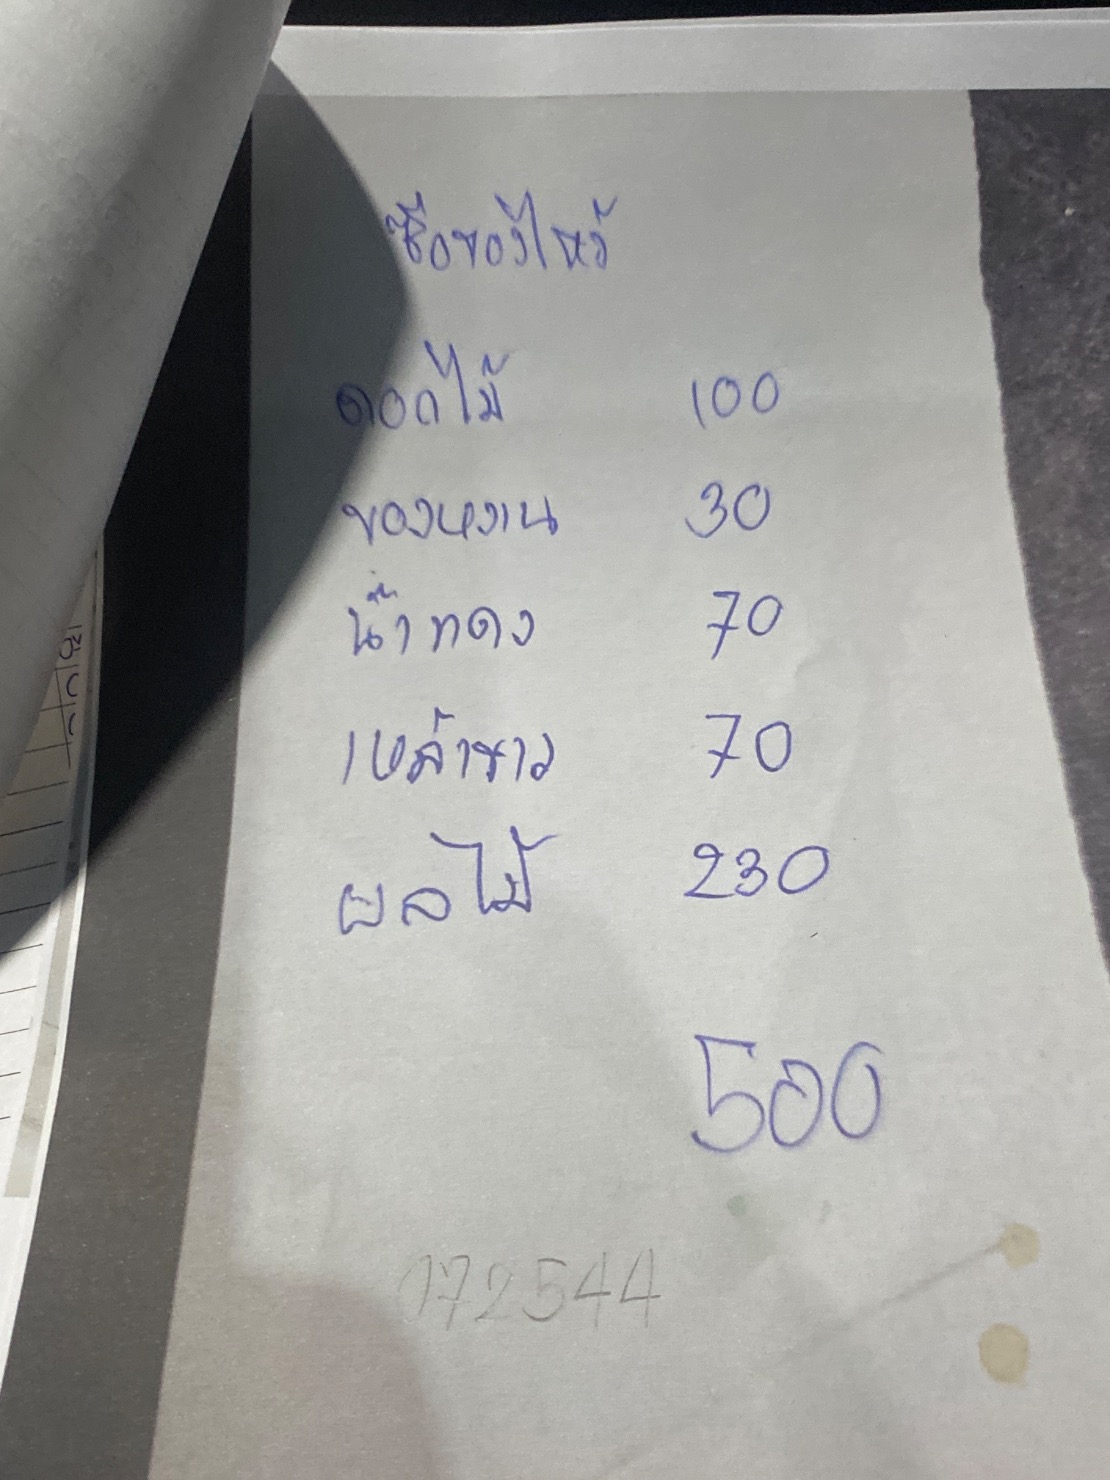 ซื้อของไหว้
ดอกไม้ 100
ของหวาน 30
น้ำแดง 70
เหล้าขาว 70
ผลไม้ 230
500
172544